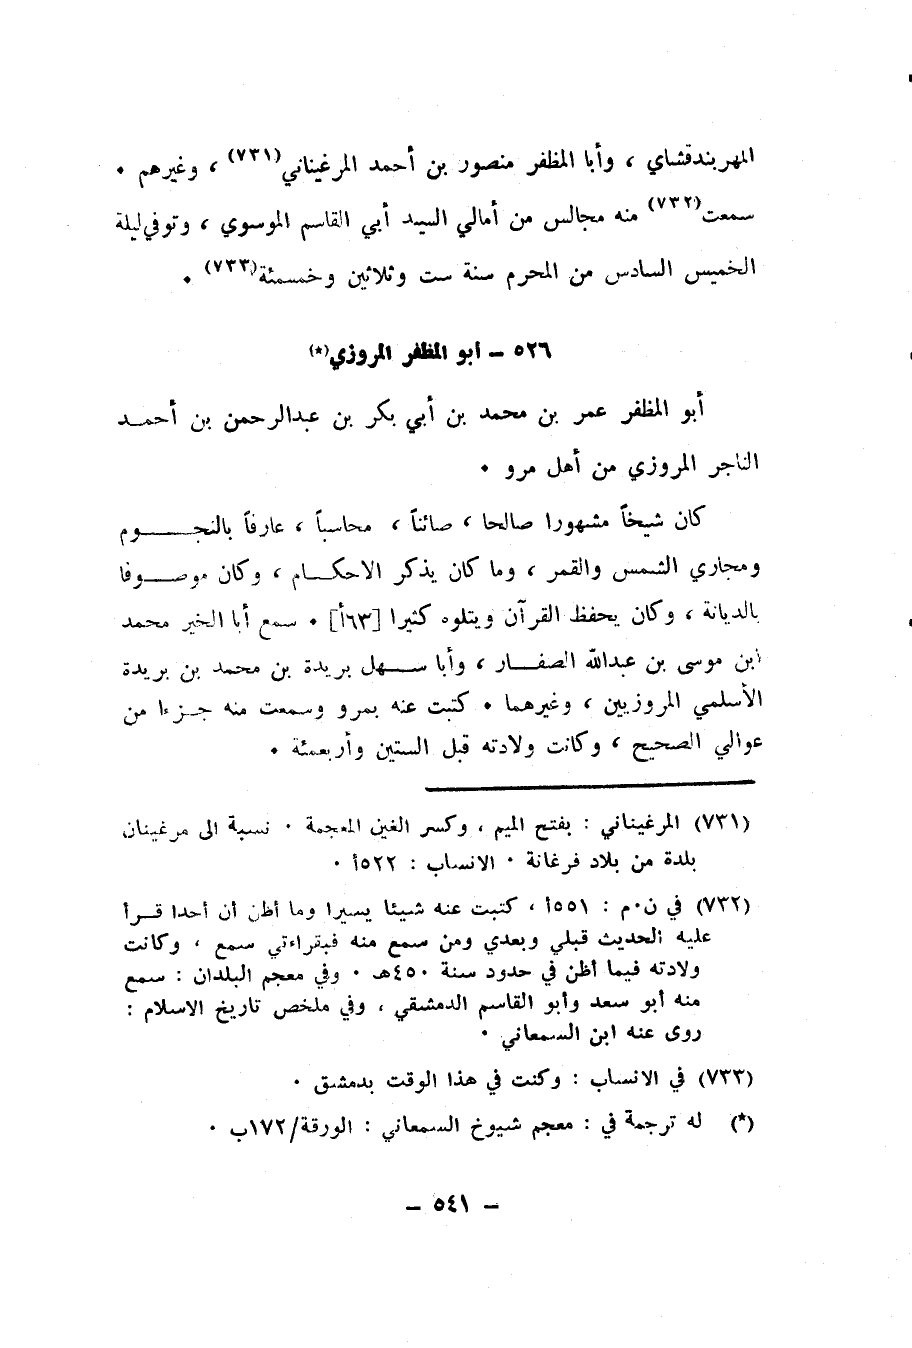 المهربندقشاي ، وأبا المظفر منصور بن أحمد المرغيناني(٧٣١) ، وغيرهم ٠
سمعت(٧٣٢) منه مجالس من أمالي السيد أبي القاسم الموسوي ، وتوفي ليلة
الخميس السادس من المحرم سنة ست وثلاثين وخمسمئة(٧٣٣) ٠
٥٢٦ ــ أبو المظفر المروزي(*)
أبو المظفر عمر بن محمد بن أبي بكر بن عبدالرحمن بن أحمـد
التاجر المروزي من أهل مرو ٠
كان شيخاً مشهورا صالحا ، صائناً ، محاسباً ، عارفاً بالنجـــوم
ومجاري الشمس والقمر ، وما كان يذكر الاحكـام ، وكان موصـوفا
بالديانة ، وكان يحفظ القرآن ويتلوه كثيرا [٦٣أ] ٠ سمع أبا الخير محمد
ابن موسى بن عبدالله الصفـار ، وأبا سـهل بريدة بن محمد بن بريدة
الأسلمي المروزيين ، وغيرهما ٠ كتبت عنه بمرو وسمعت منه جـزءا من
عوالي الصحيح ، وكانت ولادته قبل الستين وأربعمئة ٠
(٧٣١) المرغيناني : بفتح الميم ، وكسر الغين المعجمة ٠ نسبة الى مرغينان
بلدة من بلاد فرغانة ٠ الانساب : ٥٢٢أ ٠
(٧٣٢) في ن٠م : ٥٥١أ ، كتبت عنه شيئا يسيرا وما أظن أن أحدا قـرأ
عليه الحديث قبلي وبعدي ومن سمع منه فبقراءتي سمع ، وكانت
ولادته فيما أظن في حدود سنة ٤٥٠هـ ٠ وفي معجم البلدان : سمع
منه أبو سعد وأبو القاسم الدمشقي ، وفي ملخص تاريخ الاسلام :
روى عنه ابن السمعاني ٠
(٧٣٣) في الانساب : وكنت في هذا الوقت بدمشق ٠
(*) له ترجمة في : معجم شيوخ السمعاني : الورقة/١٧٢ب ٠
ــ ٥٤١ ــ